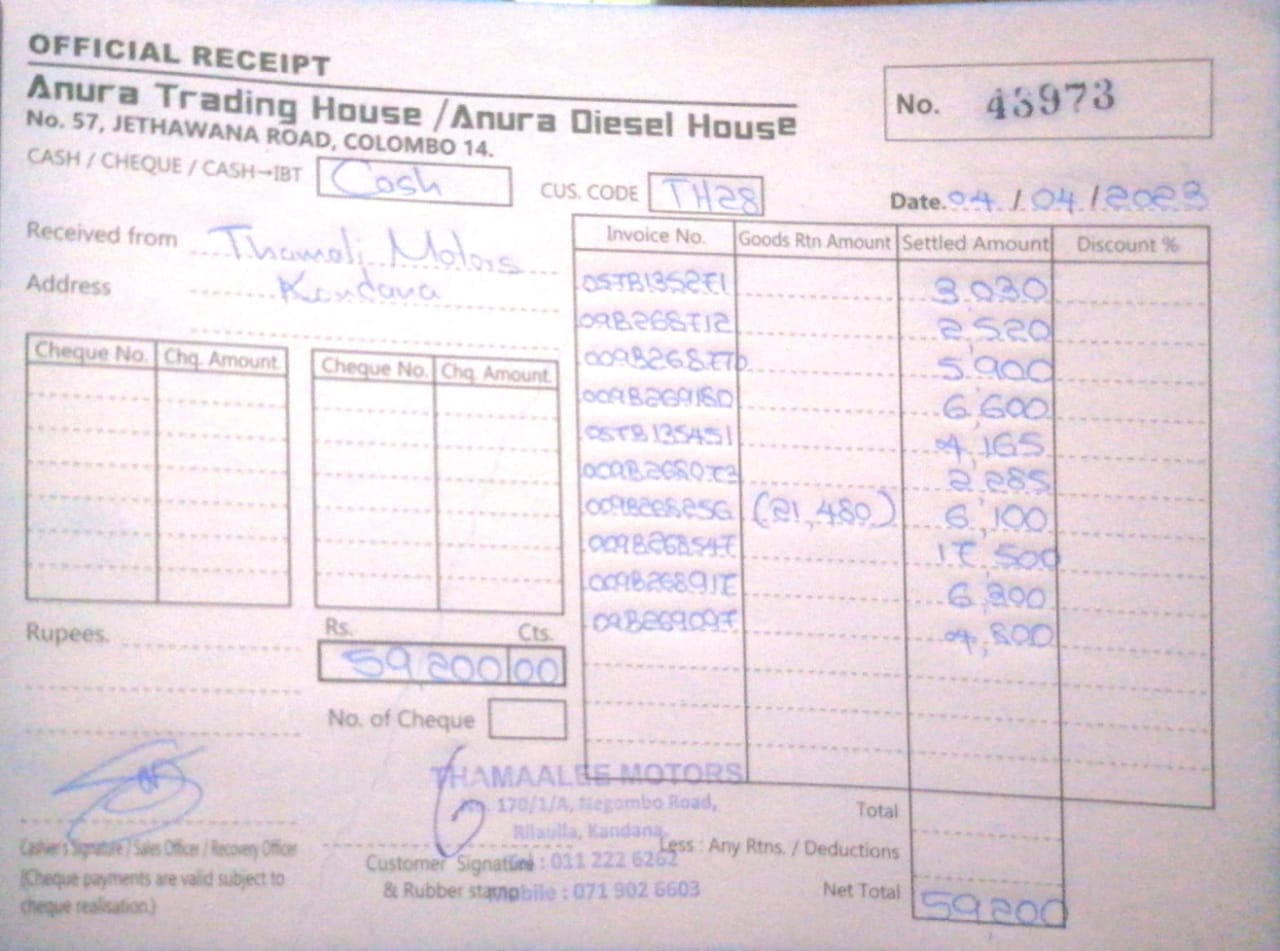 OFFICIAL RECEIPT
Anura Trading House / Anura Diesel House
No. 57, JETHAWANA ROAD, COLOMBO 14.
No. 43973
CASH / CHEQUE / CASH→IBT Cash CUS. CODE TH28 Date. 04 / 04 / 2023
Received from Thamali Motors
Address Kandana
Invoice No. Goods Rtn Amount Settled Amount Discount %
05TB135271 3,030
09B268712 2,520
009B268770 5,900
009B269180 6,600
05TB135451 4,165
009B268073 2,285
009B268256 (21,480) 6,100
009B268547 17,500
009B268917 6,300
09B269097 4,800
Cheque No. Chq. Amount Cheque No. Chq. Amount
Rupees. Rs. Cts.
59,200 00
No. of Cheque
THAMAALEE MOTORS
No. 170/1/A, Negombo Road,
Rilaulla, Kandana.
: 011 222 6262
Mobile : 071 902 6603
Total
Less : Any Rtns. / Deductions
Net Total 59,200
Cashier's Signature / Sales Officer / Recovery Officer
(Cheque payments are valid subject to
cheque realisation.)
Customer Signature
& Rubber stamp